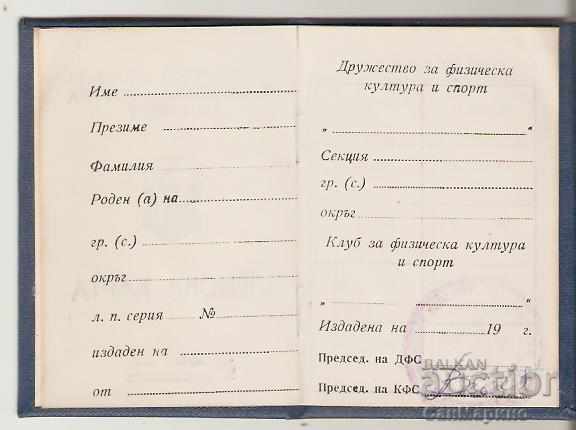 Име
Презиме
Фамилия
Роден (а) на
гр. (с.)
окръг
л. п. серия № 
издаден на
от
Дружество за физическа
култура и спорт
„ “
Секция
гр. (с.)
окръг
Клуб за физическа култура
и спорт
„ “
Издадена на 19 г.
Председ. на ДФС
Председ. на КФС
BALKAN
auction
СанМарино